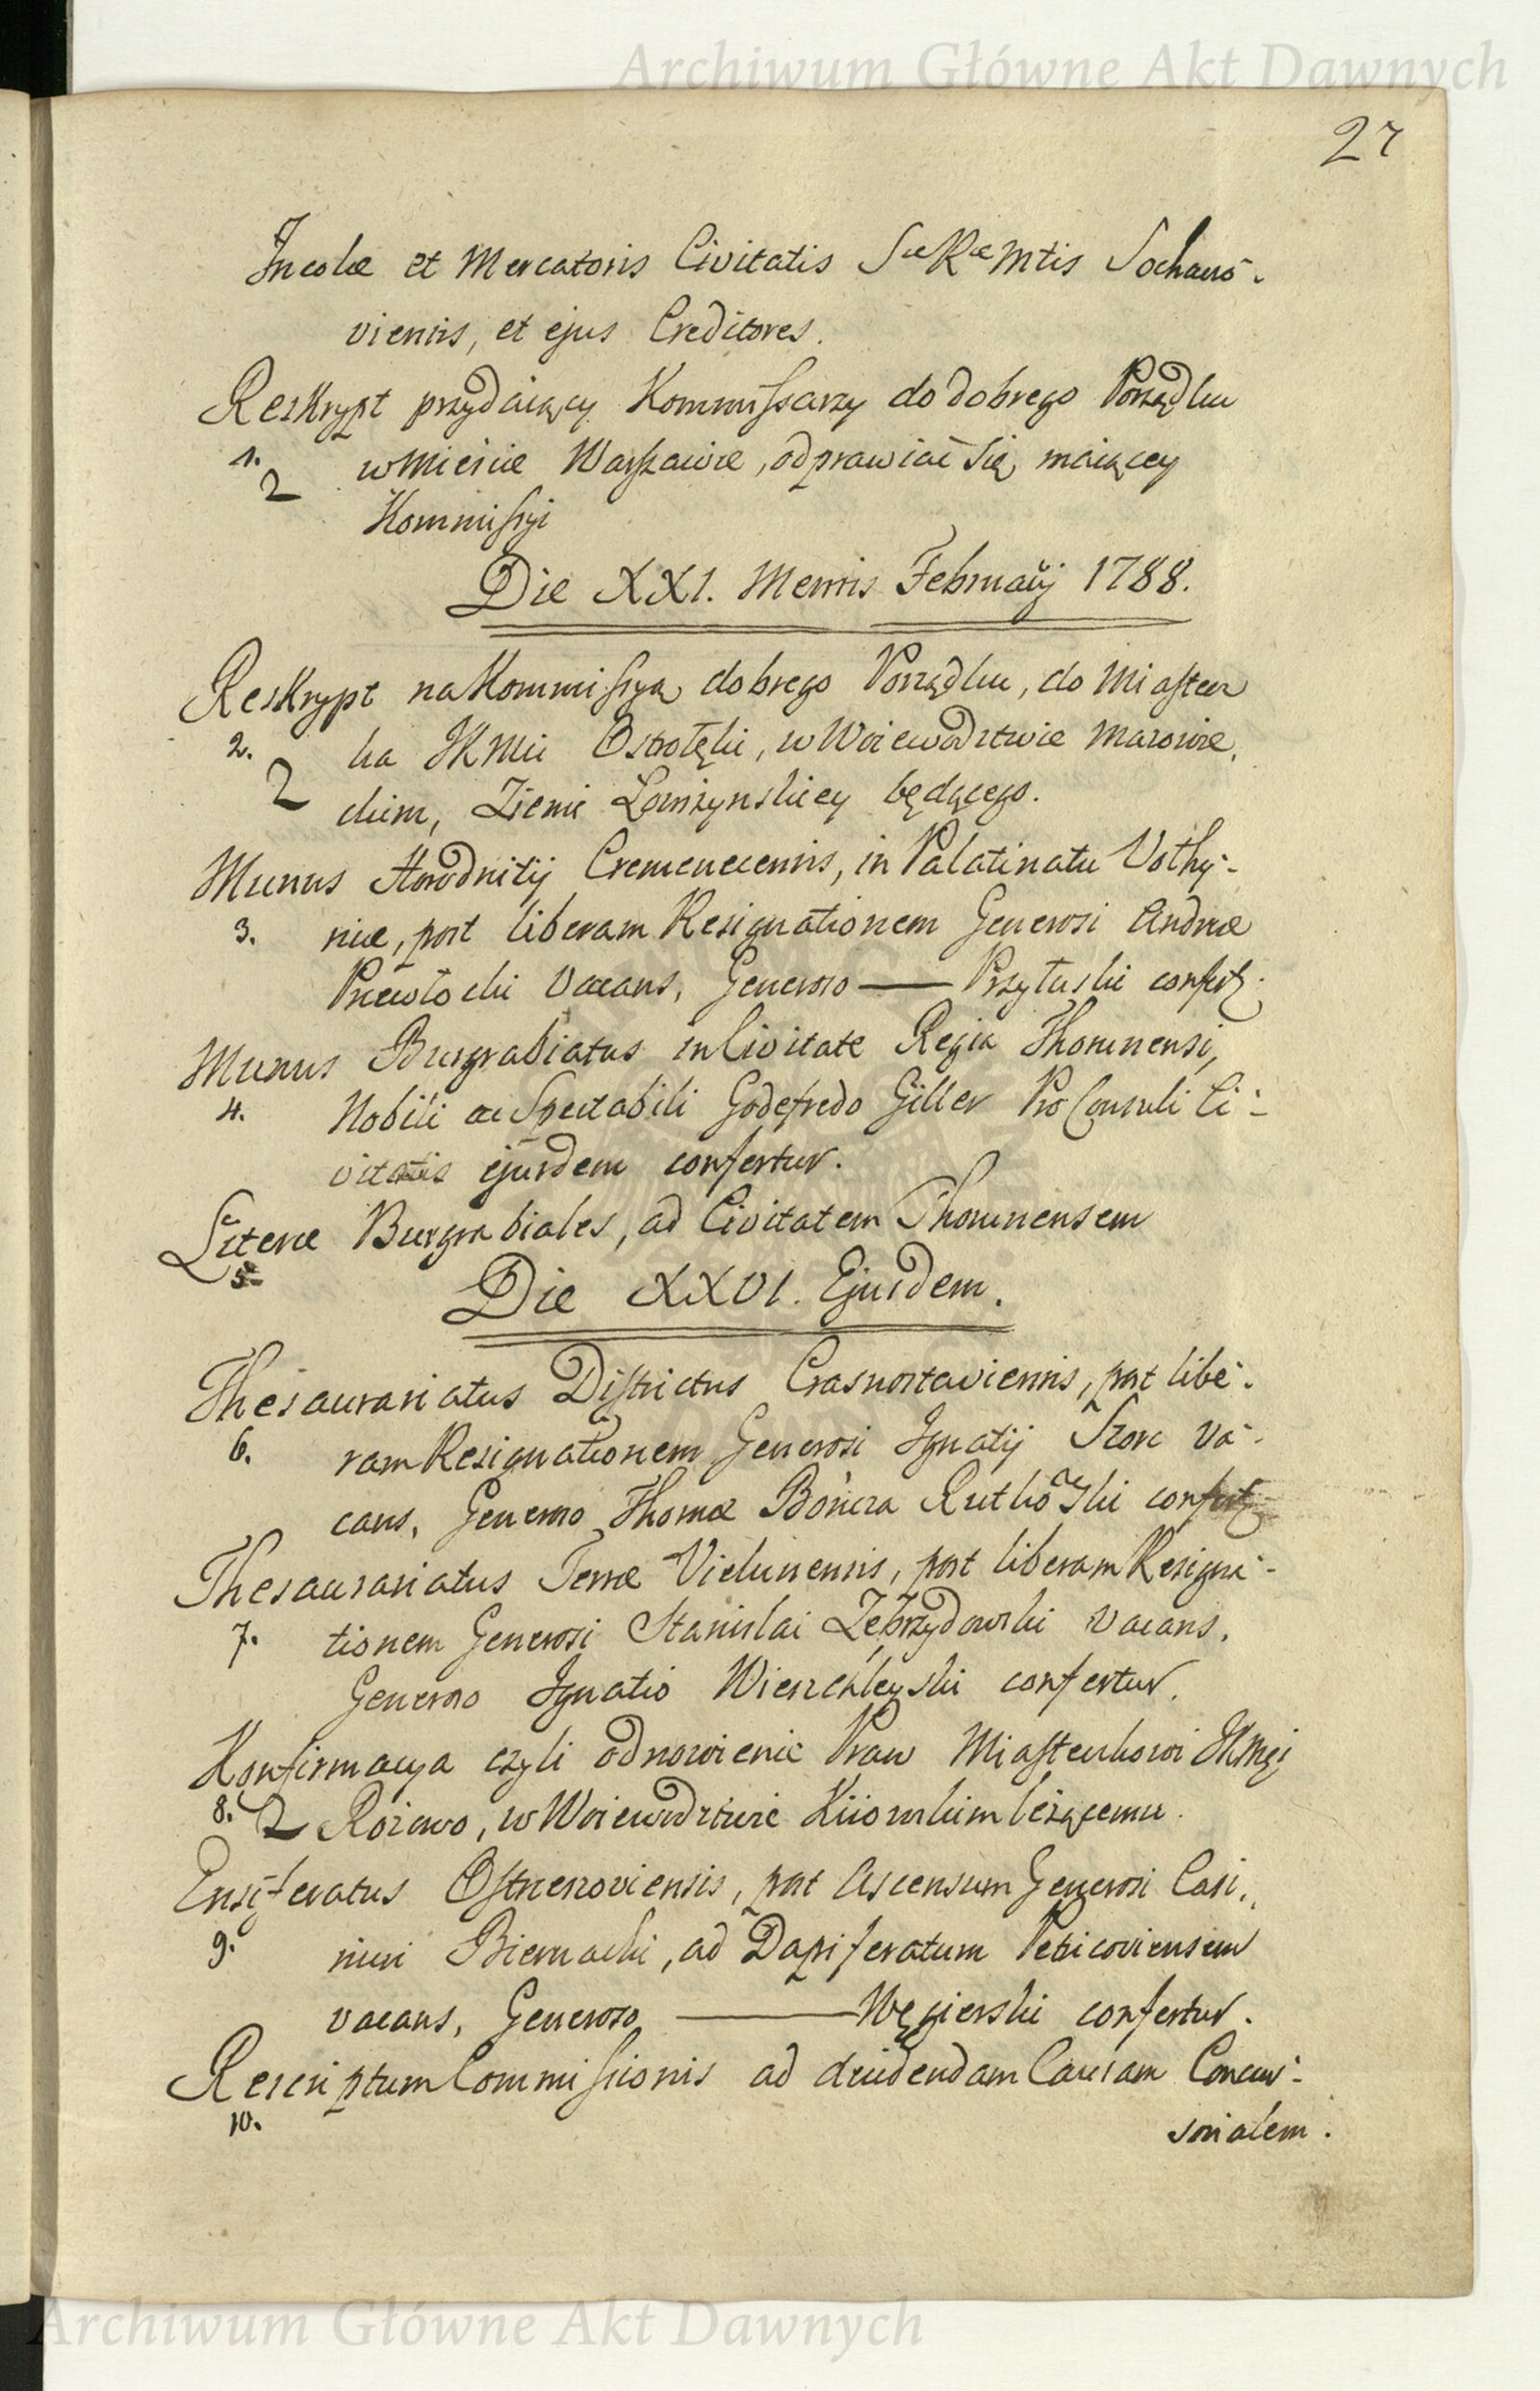 Archiwum Główne Akt Dawnych
27
Incolæ et Mercatoris Civitatis Sæ Ræ Mtis Sochaco-
viensis, et ejus Creditores.
Reskrypt przydaiący Kommissarzy do dobrego Porządku
1.
2
w Mieście Warszawie, odprawiać się maiącey
Kommissyi
Die XXI. Mensis Februarij 1788.
Reskrypt na Kommissyą dobrego Porządku, do Miastecz
2.
2
ka JKMci Ostrołęki, w Woiewodztwie Mazowie,
ckim, Ziemi Łomżynskiey będącego.
Munus Horodnitij Cremenecensis, in Palatinatu Volhy-
3. niæ, post liberam Resignationem Generosi Andreæ
Przewłocki vacans, Generoso — Przyłuski confertz.
Munus Burgrabiatus in Civitate Regia Thorunensi,
4. Nobili ac Spectabili Godefredo Giller Pro Consuli Ci-
vitatis ejusdem confertur.
Literæ Burgrabiales, ad Civitatem Thorunensem
5.
Die XXVI. Ejusdem.
Thesaurariatus Districtus Crasnostaviensis, post libe-
6. ram Resignationem Generosi Ignatij Skora va-
cans, Generoso Thomæ Bończa Rutkoski confertz
Thesaurariatus Terræ Vielunensis, post liberam Resigna-
7. tionem Generosi Stanislai Zebrzydowski vacans,
Generoso Ignatio Wierzchleyski confertur.
Konfirmacya czyli odnowienie Praw Miasteczkowi JKMci
8. 2 Rożewo, w Woiewodztwie Kiiowskim leżącemu.
Ensiferatus Ostrzeszoviensis, post Ascensum Generosi Casi,
9. miri Biernacki, ad Dapiferatum Petricoviensem
vacans, Generoso — Węgierski confertur.
Rescriptum Commissionis ad decidendam Causam Concur-
10.
sorialem.
Archiwum Główne Akt Dawnych